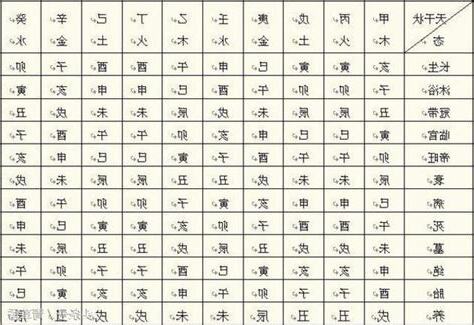 天干状 甲 丙 戊 庚 壬 乙 丁 己 辛 癸
态 木 火 土 金 水 木 火 土 金 水
长生 亥 寅 寅 巳 申 午 酉 酉 子 卯
沐浴 子 卯 卯 午 酉 巳 申 申 亥 寅
冠带 丑 辰 辰 未 戌 辰 未 未 戌 丑
临官 寅 巳 巳 申 亥 卯 午 午 酉 子
帝旺 卯 午 午 酉 子 寅 巳 巳 申 亥
衰 辰 未 未 戌 丑 丑 辰 辰 未 戌
病 巳 申 申 亥 寅 子 卯 卯 午 酉
死 午 酉 酉 子 卯 亥 寅 寅 巳 申
墓 未 戌 戌 丑 辰 戌 丑 丑 辰 未
绝 申 亥 亥 寅 巳 酉 子 子 卯 午
胎 酉 子 子 卯 午 申 亥 亥 寅 巳
养 戌 丑 丑 辰 未 未 戌 戌 丑 辰